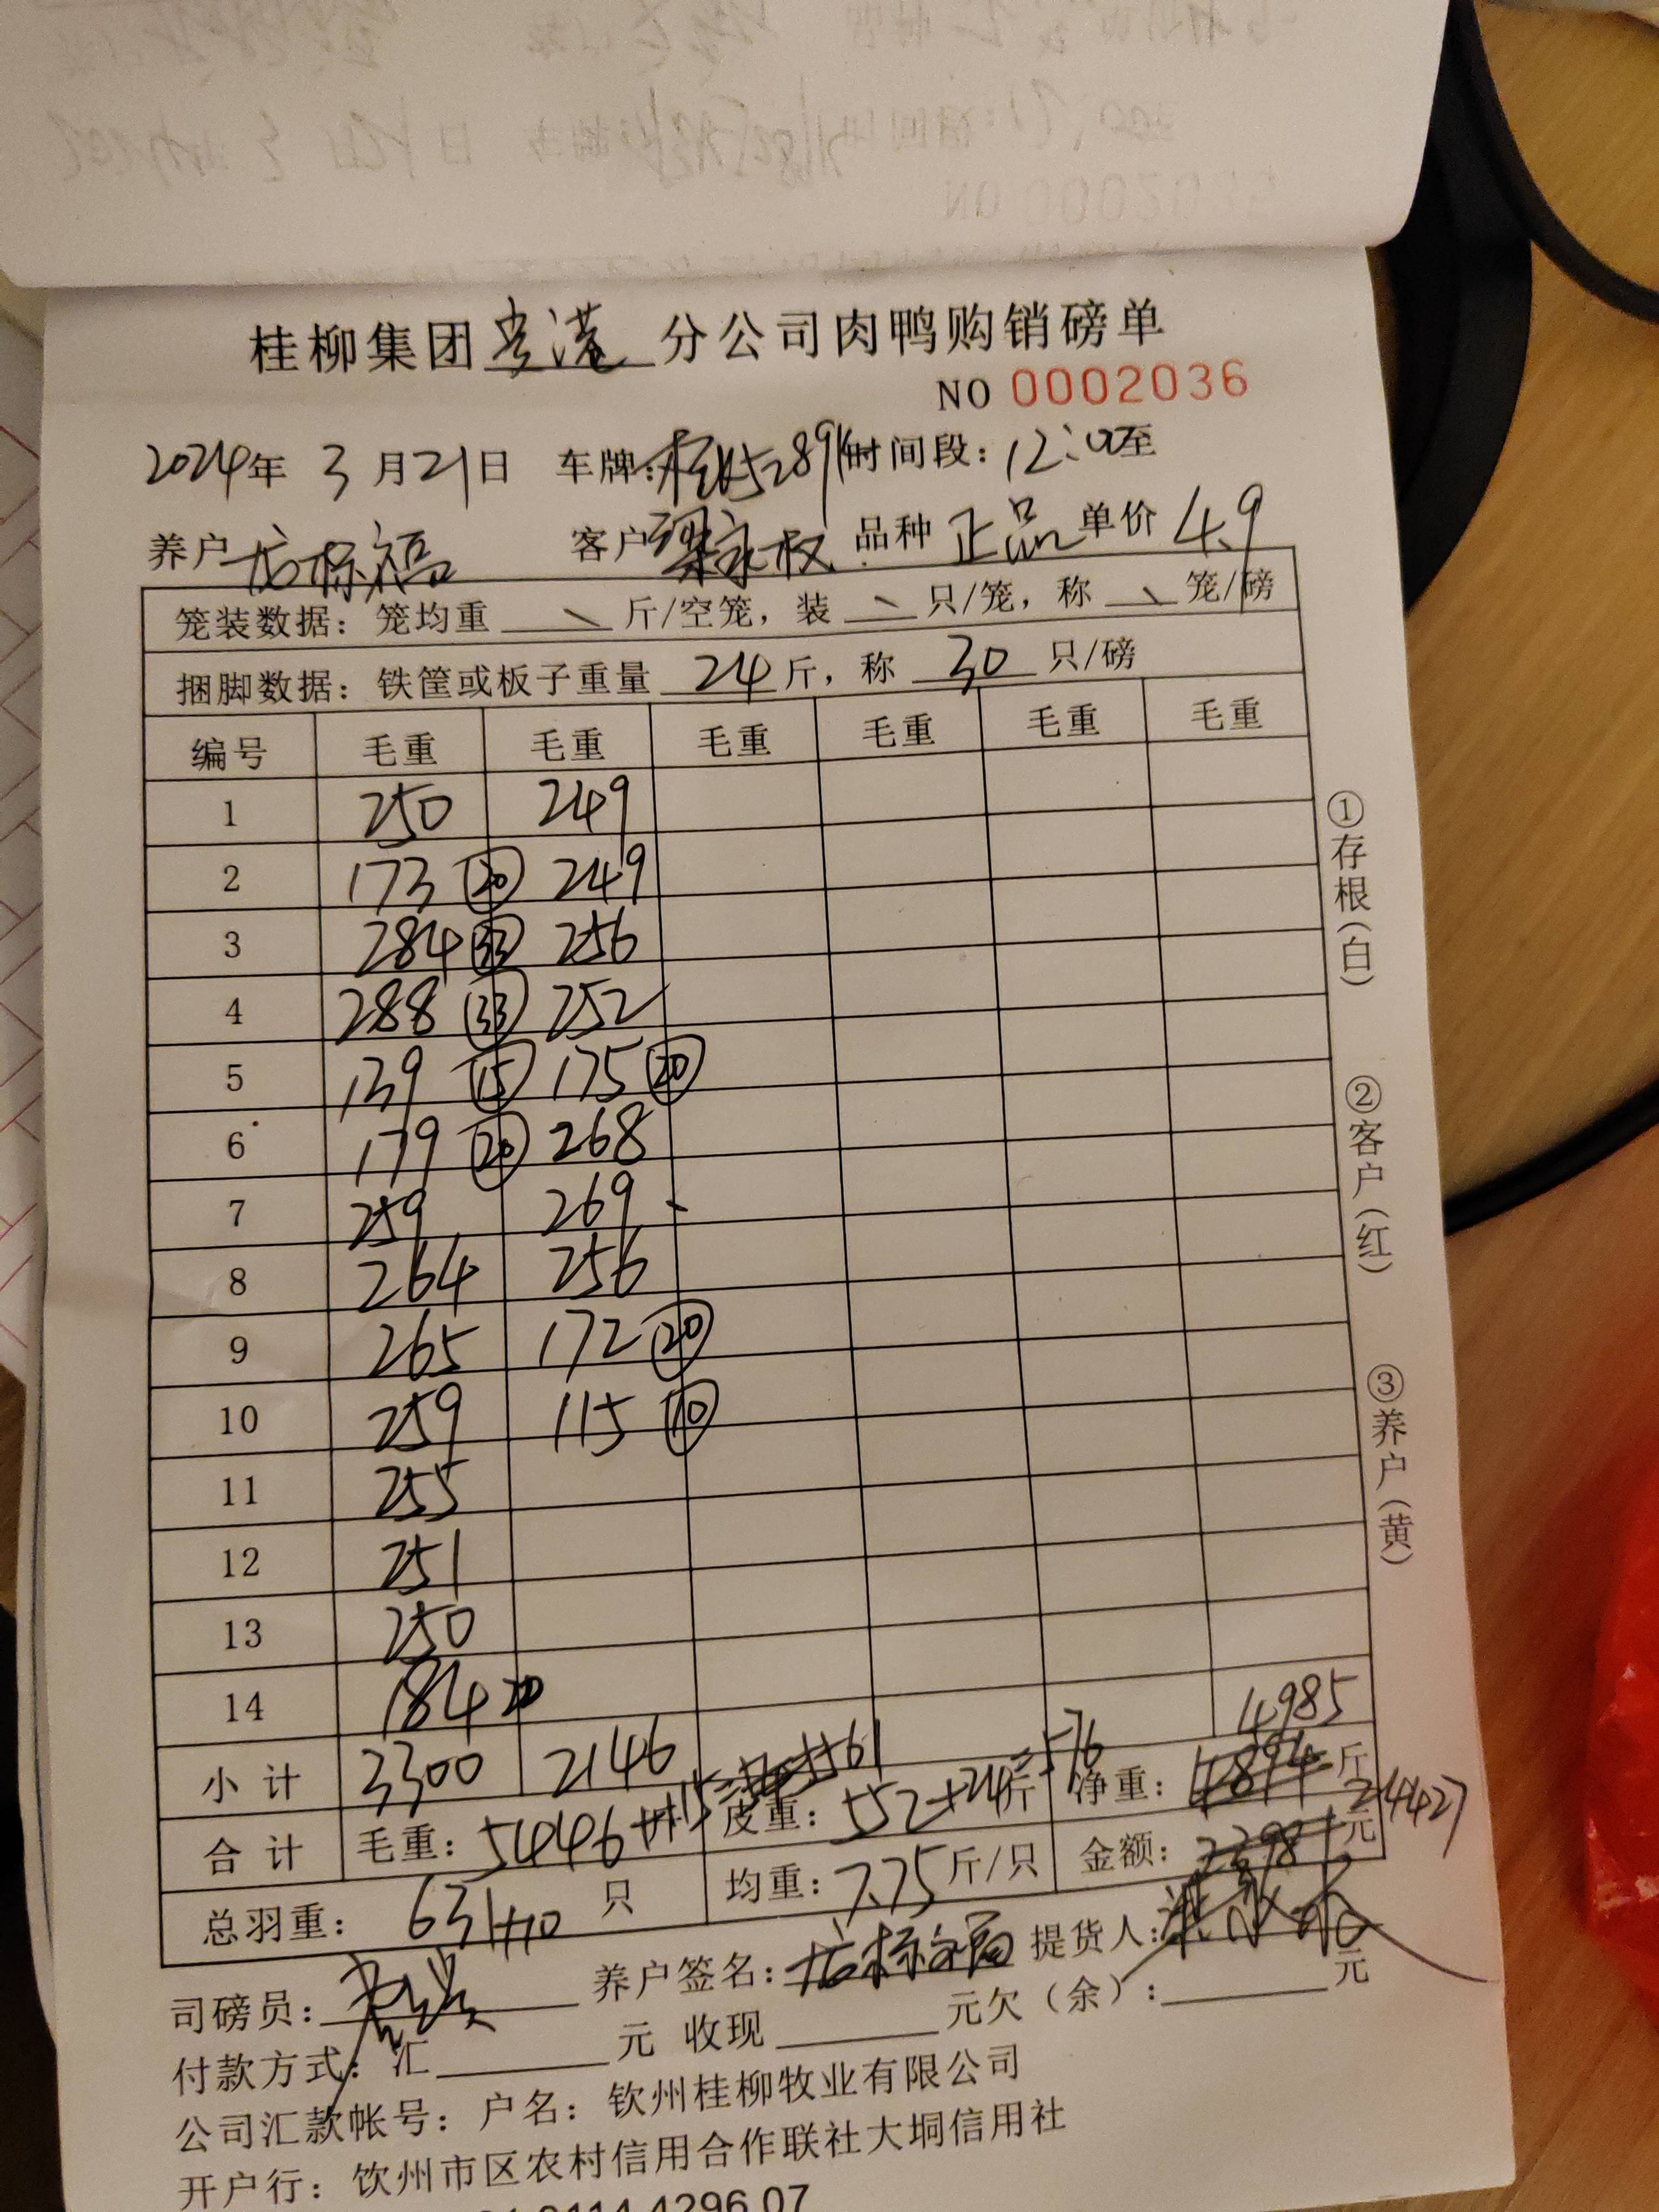 桂柳集团贵港分公司肉鸭购销磅单
NO 0002036
2024年 3月21日 车牌: 时间段: 12:00至
养户 龙标福 客户 梁永权 品种 正品 单价 4.9
笼装数据: 笼均重 斤/空笼, 装 只/笼, 称 笼/磅
捆脚数据: 铁筐或板子重量 24 斤, 称 30 只/磅
编号 毛重 毛重 毛重 毛重 毛重 毛重
1 250 249
2 173 (20) 249
3 284 (33) 256
4 288 (33) 252
5 139 (15) 175 (20)
6 179 (20) 268
7 259 269
8 264 256
9 265 172 (20)
10 259 115 (10)
11 255
12 251
13 250
14 184 20
4985
小计 3300 2146
合计 毛重: 5446+115=5561 皮重: 552+24斤=576 净重: 4894斤
24427
总羽重: 631+10 只 均重: 7.75斤/只 金额: 23981元
司磅员: 养户签名: 龙标福 提货人:
付款方式: 汇 元 收现 元欠(余): 元
公司汇款帐号: 户名: 钦州桂柳牧业有限公司
开户行: 钦州市区农村信用合作联社大垌信用社
0114 4296 07
①存根(白)
②客户(红)
③养户(黄)